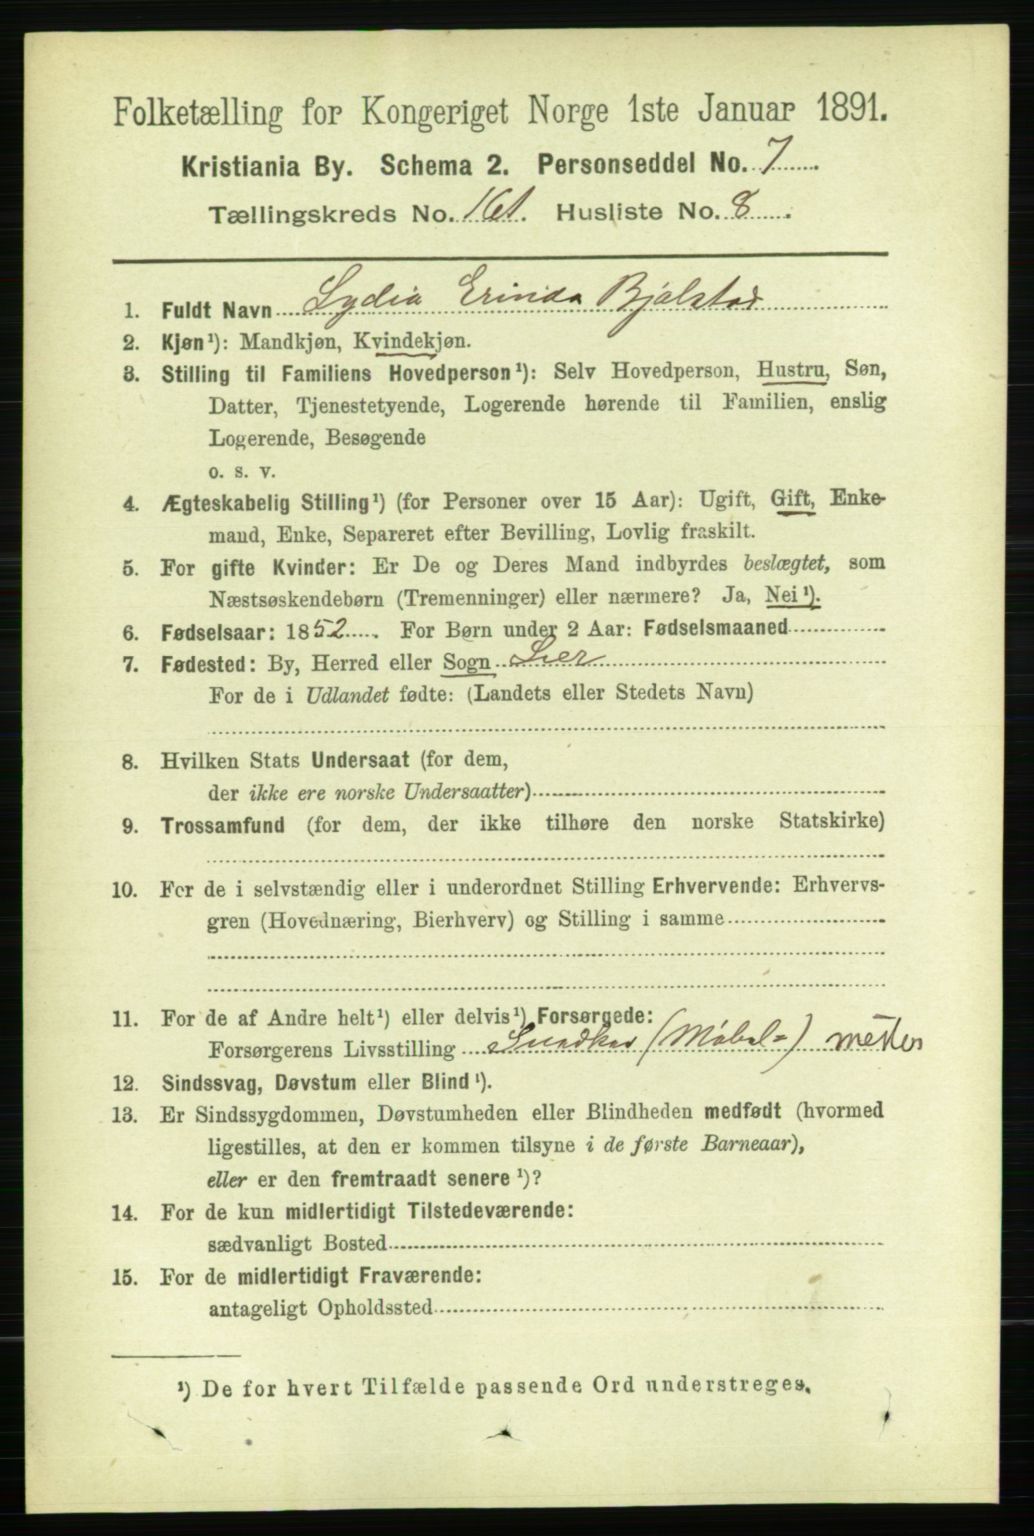 Folketælling for Kongeriget Norge 1ste Januar 1891.
Kristiania By. Schema 2. Personseddel No. 7
Tællingskreds No. 161. Husliste No. 8.
1. Fuldt Navn Lydia Erinda Bjølstad
2. Kjøn¹): Mandkjøn, Kvindekjøn.
3. Stilling til Familiens Hovedperson¹): Selv Hovedperson, Hustru, Søn,
Datter, Tjenestetyende, Logerende hørende til Familien, enslig
Logerende, Besøgende
o. s. v.
4. Ægteskabelig Stilling¹) (for Personer over 15 Aar): Ugift, Gift, Enke-
mand, Enke, Separeret efter Bevilling, Lovlig fraskilt.
5. For gifte Kvinder: Er De og Deres Mand indbyrdes beslægtet, som
Næstsøskendebørn (Tremenninger) eller nærmere? Ja, Nei¹).
6. Fødselsaar: 1852. For Børn under 2 Aar: Fødselsmaaned
7. Fødested: By, Herred eller Sogn Lier
For de i Udlandet fødte: (Landets eller Stedets Navn)
8. Hvilken Stats Undersaat (for dem,
der ikke ere norske Undersaatter)
9. Trossamfund (for dem, der ikke tilhøre den norske Statskirke)
10. For de i selvstændig eller i underordnet Stilling Erhvervende: Erhvervs-
gren (Hovednæring, Bierhverv) og Stilling i samme
11. For de af Andre helt¹) eller delvis¹) Forsørgede:
Forsørgerens Livsstilling Snedker (Møbel=)
12. Sindssvag, Døvstum eller Blind¹).
13. Er Sindssygdommen, Døvstumheden eller Blindheden medfødt (hvormed
ligestilles, at den er kommen tilsyne i de første Barneaar),
eller er den fremtraadt senere¹)?
14. For de kun midlertidigt Tilstedeværende:
sædvanligt Bosted
15. For de midlertidigt Fraværende:
antageligt Opholdssted
¹) De for hvert Tilfælde passende Ord understreges.